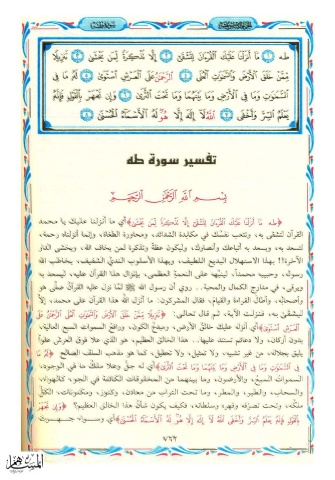 طه ۝ مَا أَنزَلْنَا عَلَيْكَ الْقُرْآنَ لِتَشْقَى ۝ إِلَّا تَذْكِرَةً لِّمَن يَخْشَى ۝ تَنزِيلًا
مِّمَّنْ خَلَقَ الْأَرْضَ وَالسَّمَاوَاتِ الْعُلَى ۝ الرَّحْمَنُ عَلَى الْعَرْشِ اسْتَوَى ۝ لَهُ مَا فِي
السَّمَاوَاتِ وَمَا فِي الْأَرْضِ وَمَا بَيْنَهُمَا وَمَا تَحْتَ الثَّرَى ۝ وَإِن تَجْهَرْ بِالْقَوْلِ فَإِنَّهُ
يَعْلَمُ السِّرَّ وَأَخْفَى ۝ اللَّهُ لَا إِلَهَ إِلَّا هُوَ لَهُ الْأَسْمَاءُ الْحُسْنَى ۝
تفسير سورة طه
بِسْمِ اللَّهِ الرَّحْمَنِ الرَّحِيمِ
﴿طه مَا أَنزَلْنَا عَلَيْكَ الْقُرْآنَ لِتَشْقَى إِلَّا تَذْكِرَةً لِّمَن يَخْشَى﴾ أي ما أنزلنا عليك يا محمد
القرآن لتشقى به، وتتعب نفسك في مكابدة الشدائد، ومحاورة الطغاة، وإنما أنزلناه رحمة،
لتسعد به، ويسعد به أتباعك وأنصارك، وليكون عظة وتذكرة لمن يخاف الله، ويخشى الدار
الآخرة!! بهذا الاستهلال البديع اللطيف، وبهذا الأسلوب الندي الشفيف، يخاطب الله
رسوله، وحبيبه محمداً، لينبهه على النعمة العظمى، بإنزال هذا القرآن عليه، ليسعد به
ويرقى، في مدارج الكمال والمحبة.. روي أن رسول الله ﷺ لما نزل عليه القرآن صلى هو
وأصحابه، وأطال القراءة والقيام، فقال المشركون: ما أنزل الله هذا القرآن على محمد، إلا
ليشقى به، فنزلت الآية، ثم قال تعالى: ﴿تَنزِيلًا مِّمَّنْ خَلَقَ الْأَرْضَ وَالسَّمَاوَاتِ الْعُلَى الرَّحْمَنُ عَلَى
الْعَرْشِ اسْتَوَى﴾ أي أنزله عليك خالق الأرض، ومبدع الكون، ورافع السموات السبع العالية،
بدون أركان، ولا دعائم تستند عليها.. هذا الخالق العظيم، هو الذي علا فوق العرش علواً
يليق بجلاله، من غير تشبيه، ولا تمثيل، ولا تحقيق، كما هو مذهب السلف الصالح ﴿لَهُ مَا
فِي السَّمَاوَاتِ وَمَا فِي الْأَرْضِ وَمَا بَيْنَهُمَا وَمَا تَحْتَ الثَّرَى﴾ أي له جل وعلا ملك ما في الوجود،
السموات السبع، والأرضون، وما بينهما من المخلوقات الكائنة في الجو، كالهواء،
والسحاب، والطير، والمطر، وما تحت التراب من معادن، وكنوز، ومكنونات، الكل
ملكه، وتحت تصرفه وقهره وسلطانه، فكيف يكون شأن هذا الخالق العظيم؟ ﴿وَإِن تَجْهَرْ
بِالْقَوْلِ فَإِنَّهُ يَعْلَمُ السِّرَّ وَأَخْفَى اللَّهُ لَا إِلَهَ إِلَّا هُوَ لَهُ الْأَسْمَاءُ الْحُسْنَى﴾ أي وسواء جهرت
٧٦٢